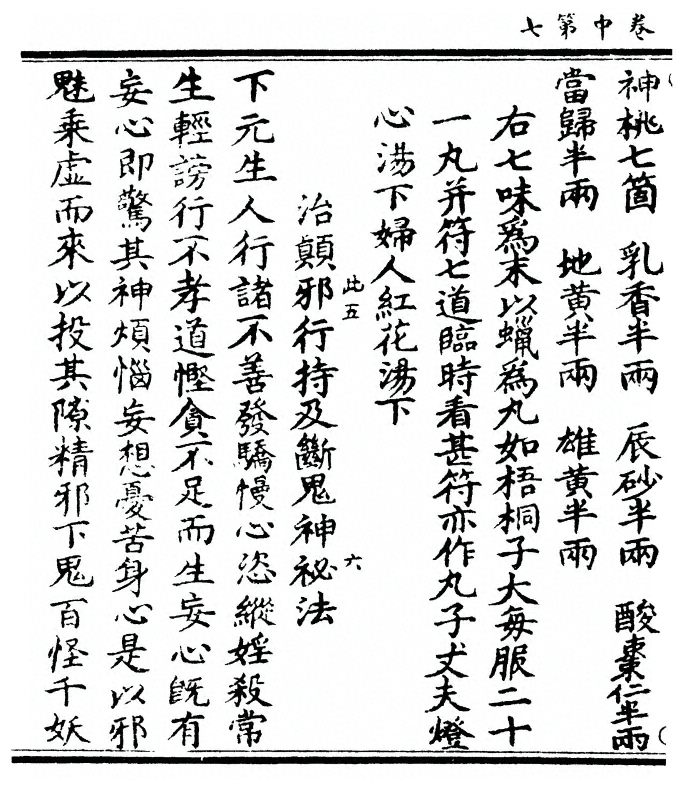 卷中第七
神桃七箇　乳香半兩　辰砂半兩　酸棗仁半兩
當歸半兩　地黄半兩　雄黄半兩
右七味爲末以蠟爲丸如梧桐子大每服二十
一丸并符七道臨時看甚符亦作丸子丈夫燈
心湯下婦人紅花湯下
治顛邪行持及斷鬼神祕法
此五　六
下元生人行諸不善發驕慢心恣縱婬殺常
生輕謗行不孝道慳貪不足而生妄心旣有
妄心即驚其神煩惱妄想憂苦身心是以邪
魅乘虛而來以投其隙精邪下鬼百怪千妖